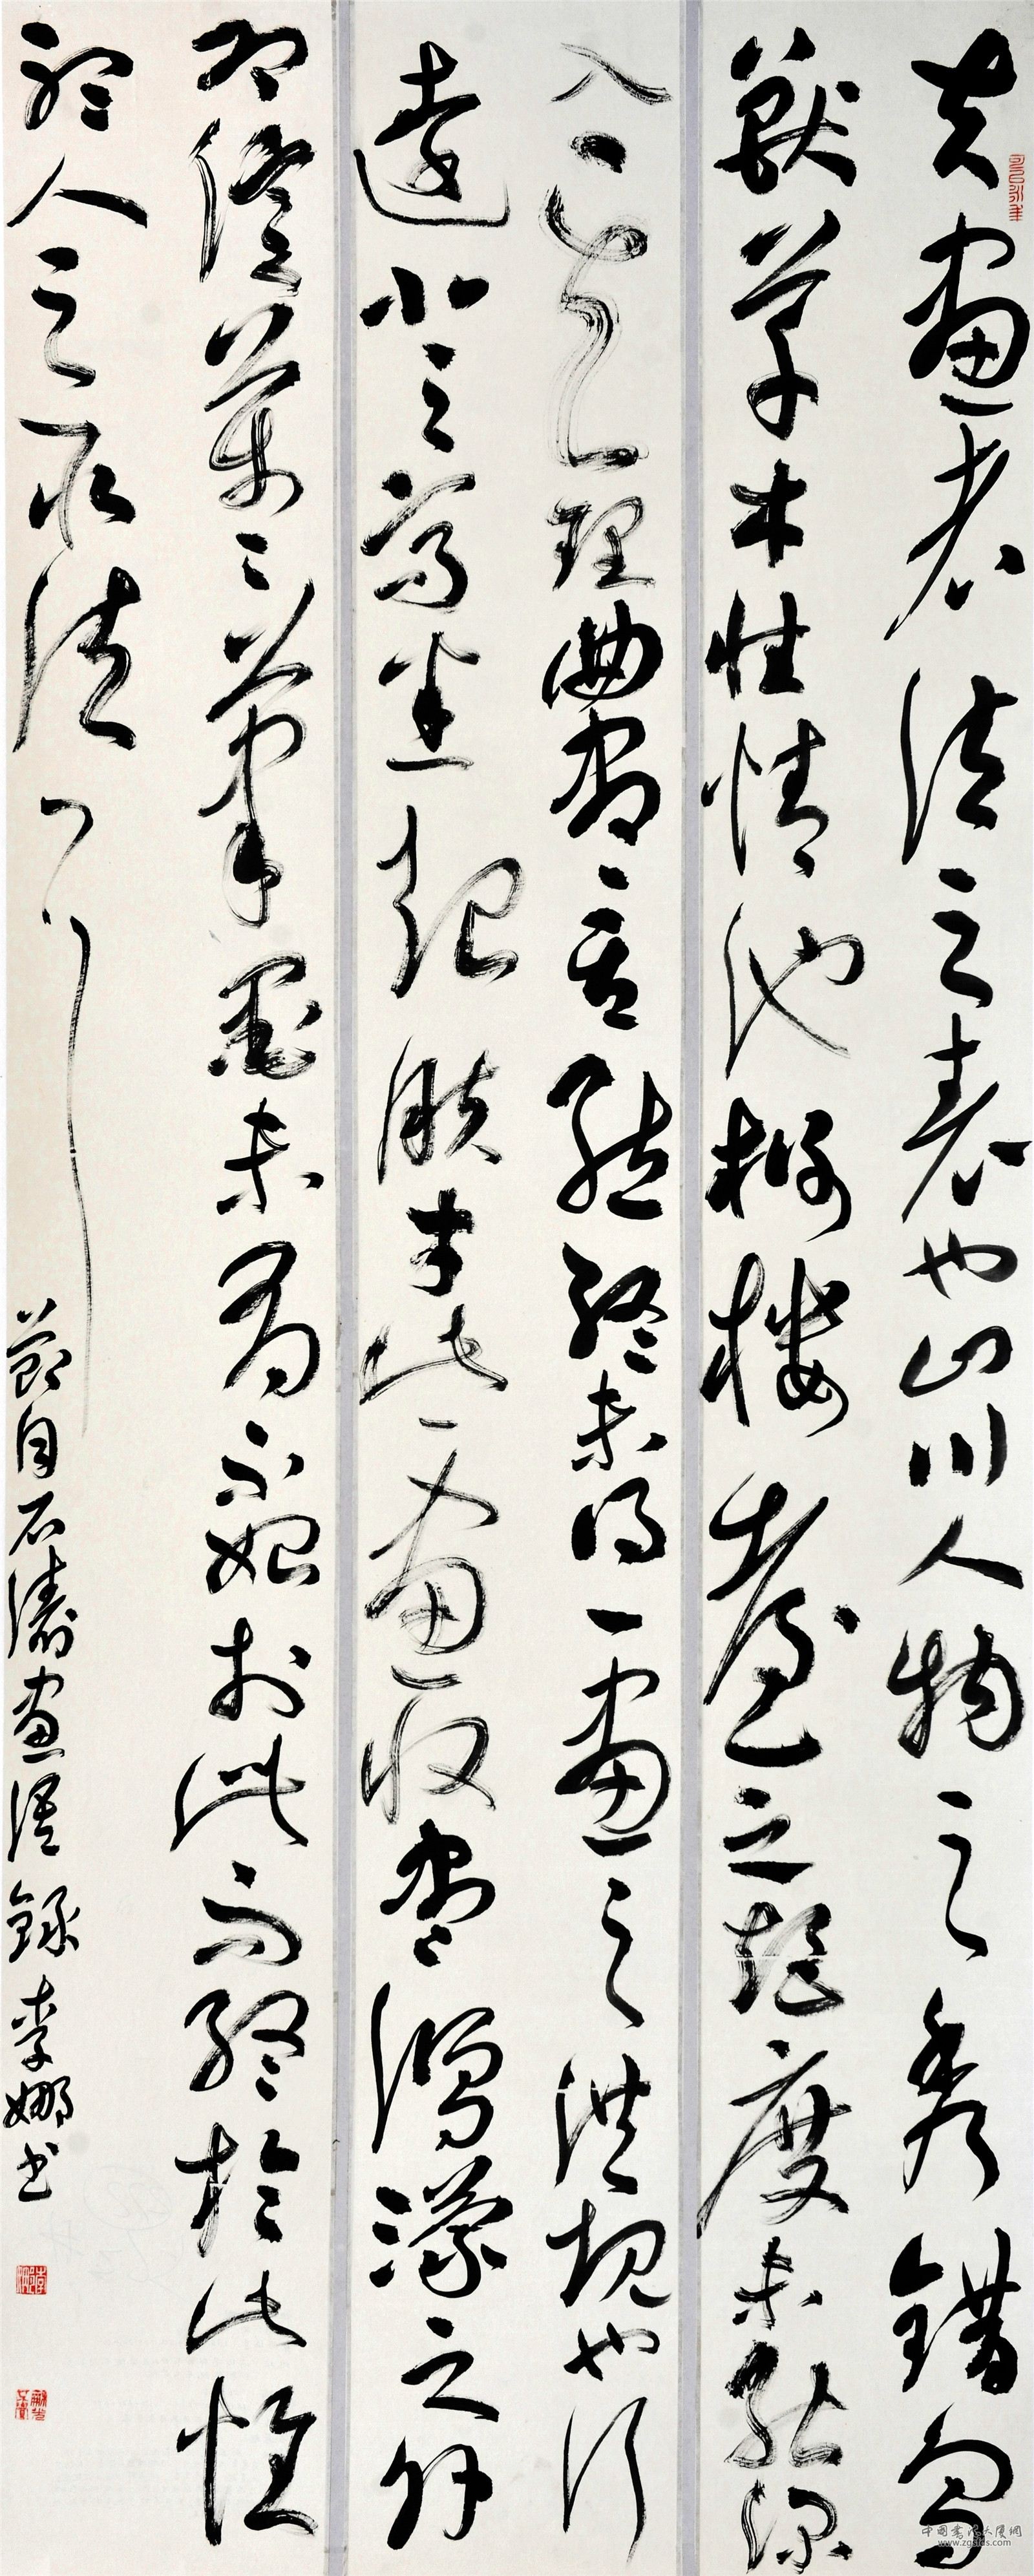 夫畫者法之表也山川人物之秀錯鳥
獸草木性情池榭樓臺之矩度未能深
入其理曲盡其態終未得一畫之洪規也行
遠登高悉起膚寸此一畫收盡鴻濛之外
即億萬萬筆墨未有不始於此而終於此惟
聽人之取法耳
節自石濤畫語錄李娜书
www.zgsfds.com